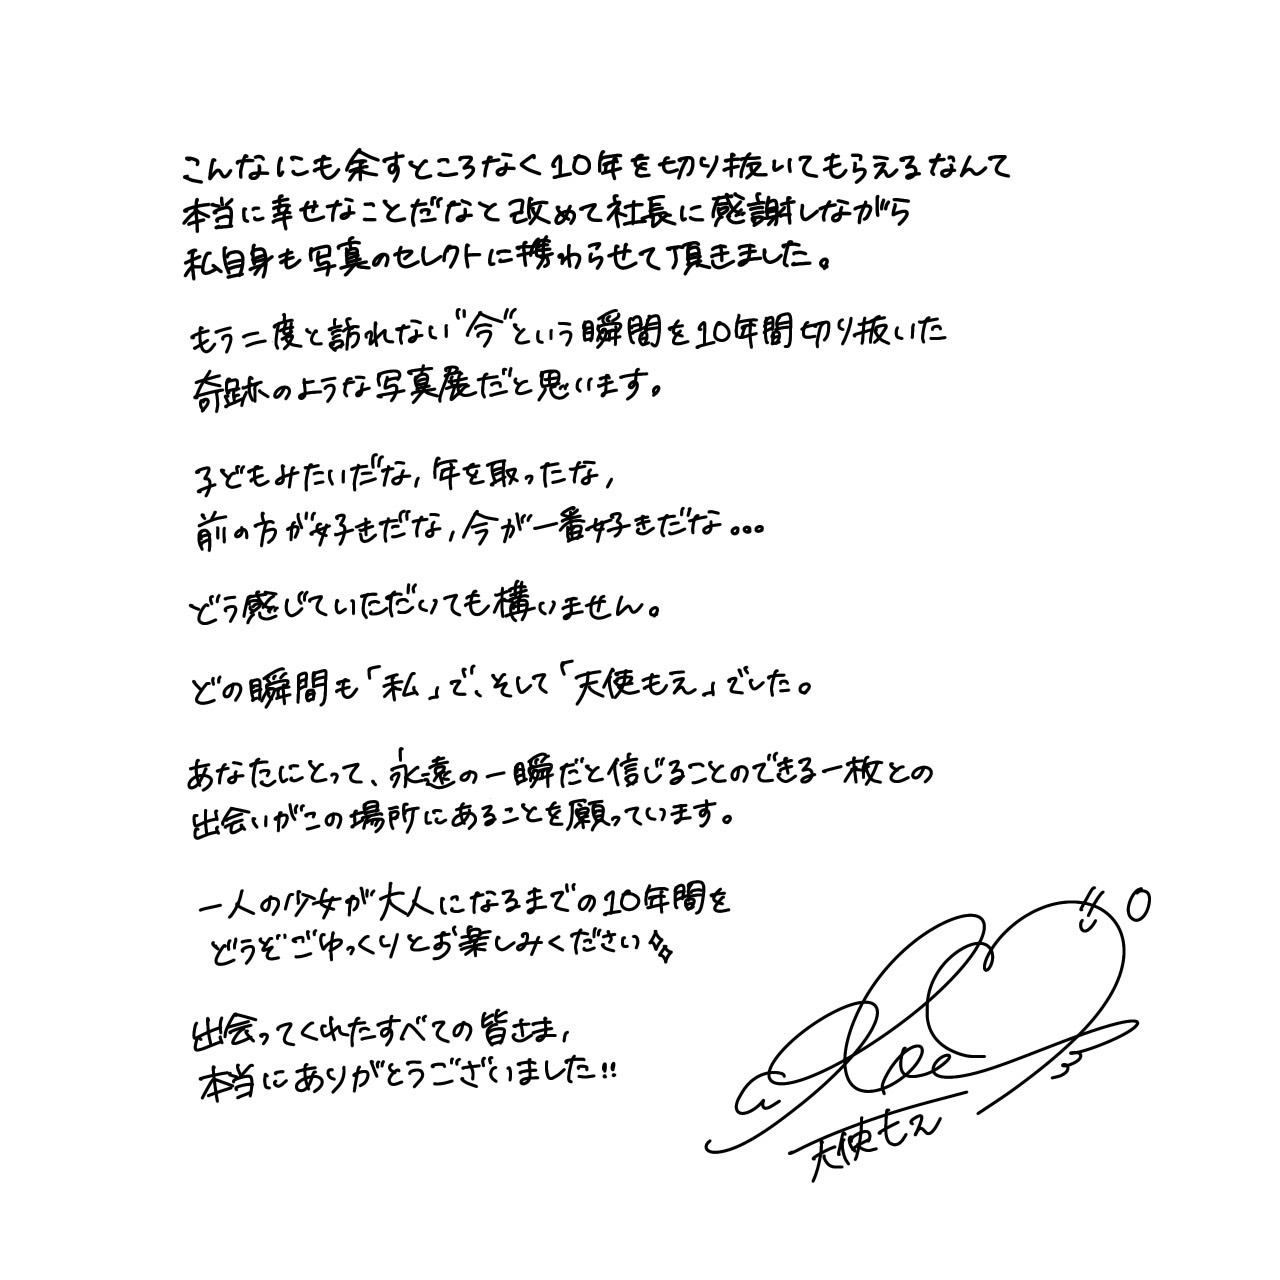 こんなにも余すところなく10年を切り抜いてもらえるなんて
本当に幸せなことだなと改めて社長に感謝しながら
私自身も写真のセレクトに携わらせて頂きました。
もう二度と訪れない"今"という瞬間を10年間切り抜いた
奇跡のような写真展だと思います。
子どもみたいだな,年を取ったな,
前の方が好きだな,今が一番好きだな...
どう感じていただいても構いません。
どの瞬間も「私」で、そして「天使もえ」でした。
あなたにとって、永遠の一瞬だと信じることのできる一枚との
出会いがこの場所にあることを願っています。
一人の少女が大人になるまでの10年間を
どうぞごゆっくりとお楽しみください✨
出会ってくれたすべての皆さま,
本当にありがとうございました!!
Moe
天使もえ